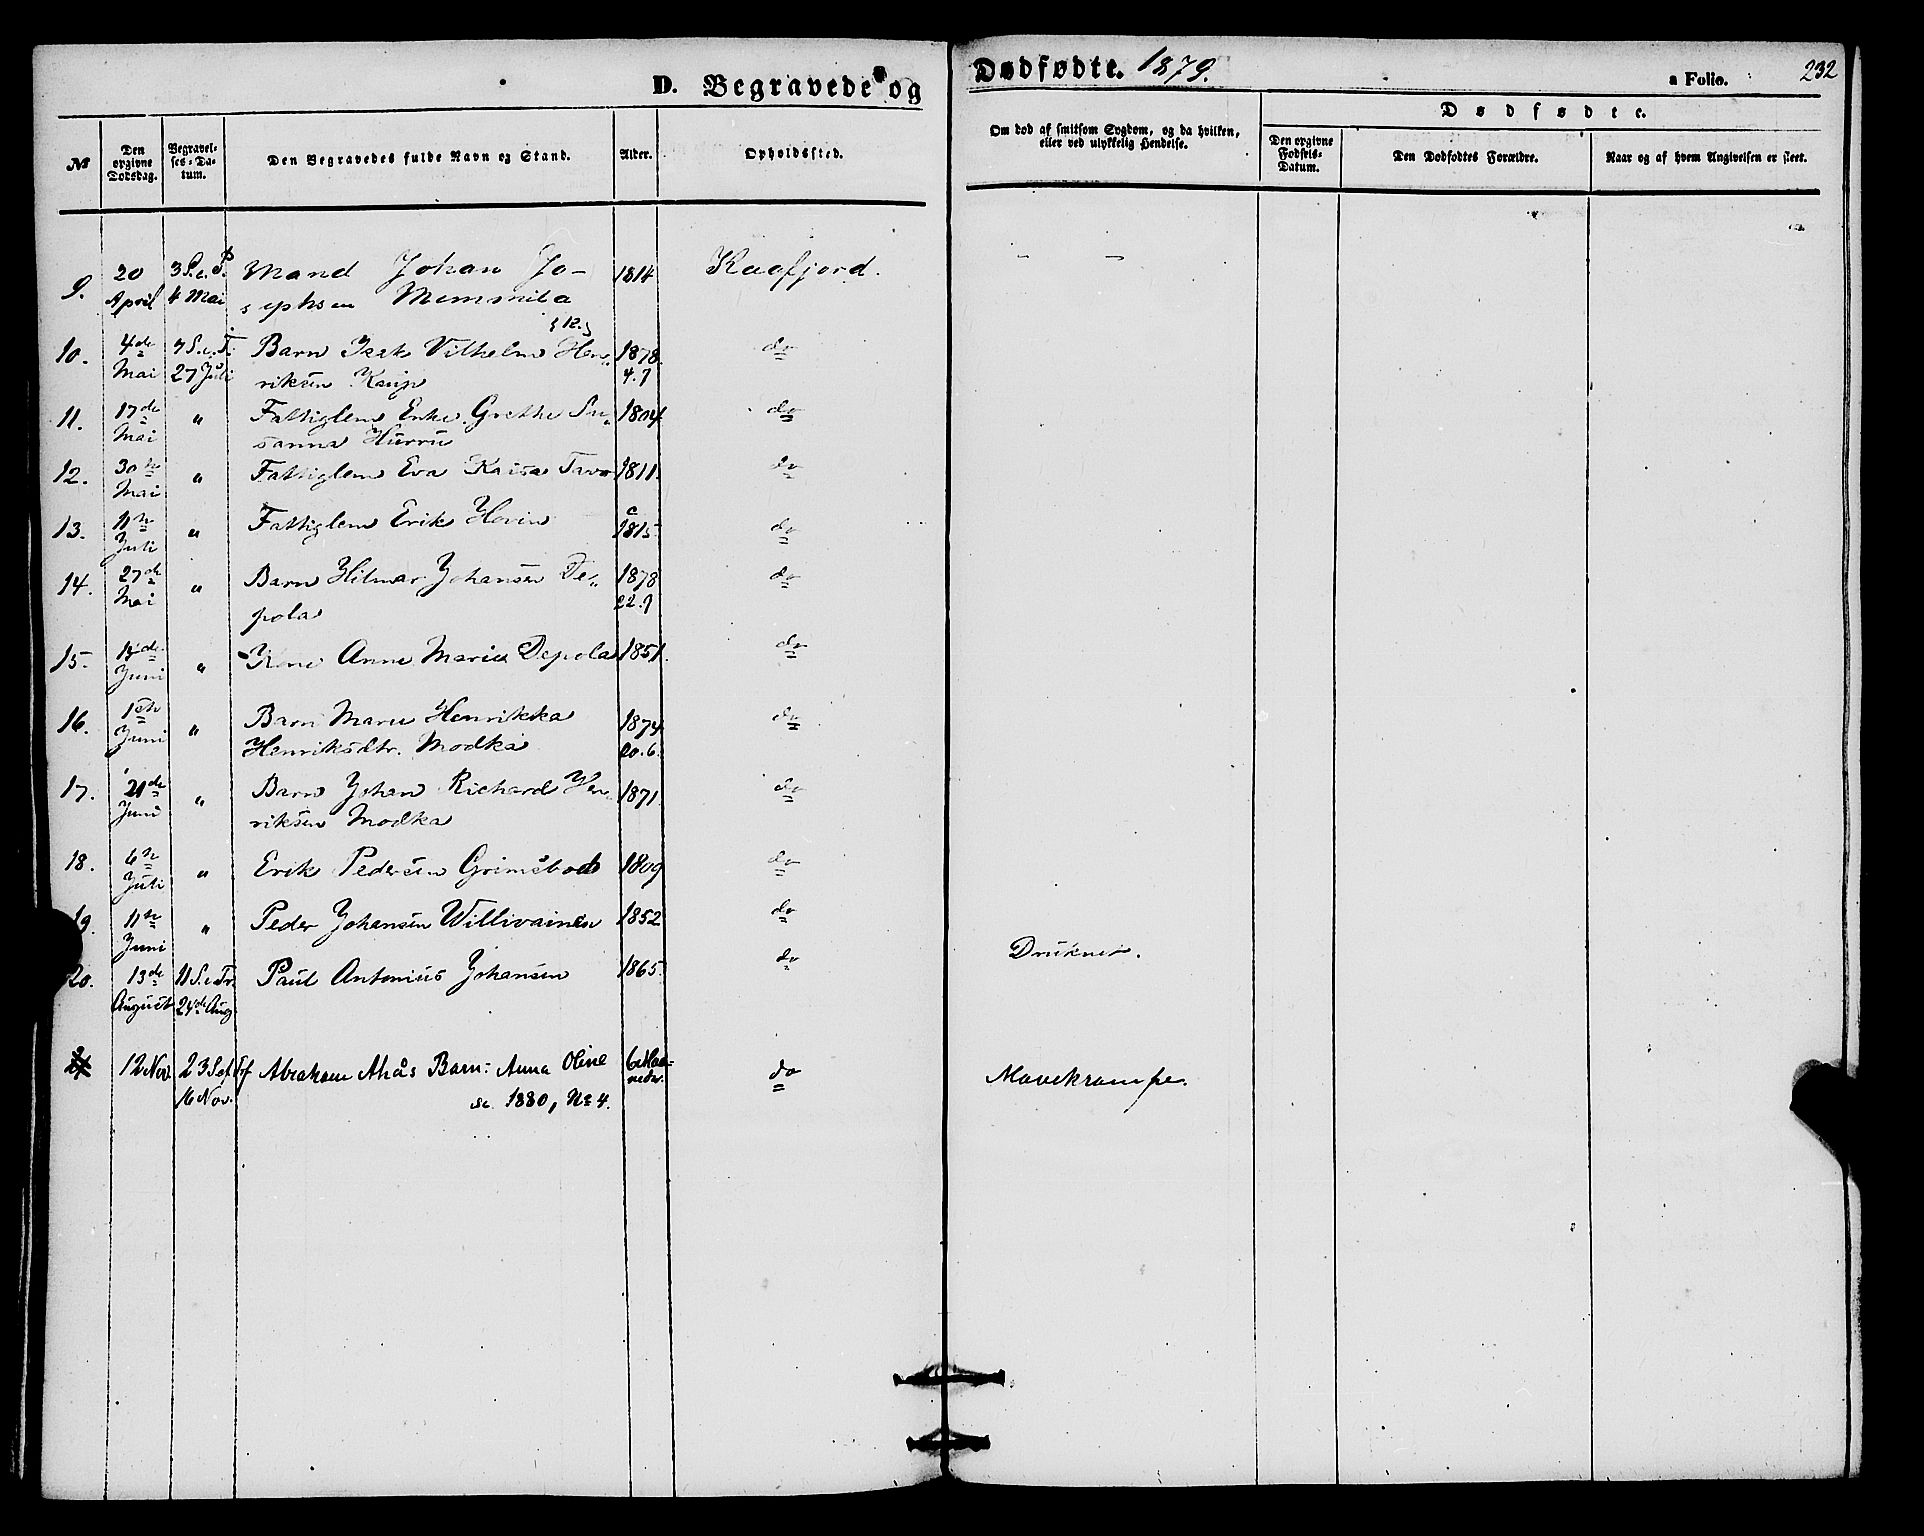 D. Begravede og Dødfødte. 1879.
a Folio. 232
Dødfødte.
№
Den opgivne Dødsdag.
Begravelses-Datum.
Den Begravedes fulde Navn og Stand.
Alder.
Opholdssted.
Om død af smitsom Sygdom, og da hvilken, eller ved ulykkelig Hendelse.
Den opgivne Fødsels-Datum.
Den Dødfødtes Forældre.
Naar og af hvem Angivelsen er skeet.
9. 20 3 S. e. P. Mand Johan Jo- 1814 Kaafjord.
April 4 Mai sephsen
10. 4de 7 S. e. T. Barn Isak Vilhelm Hen- 1878. do
Mai 27 Juli riksen 4.7
11. 17de " Fattiglem Enke Grethe Su- 1804 do
Mai sanna Hurru
12. 30te " Fattiglem Eva Kaisa Tavo 1811. do
Mai
13. 11te " Fattiglem Erik Hovin c 1815 do
Juli
14. 27de " Barn Hilmar Johansen De- 1878 do
Mai pola 22.7
15. " Kone Anne Maria Depola 1851. do
Juni
16. 1ste " Barn Maria Henrikka 1874 do
Juni Henriksdtr. Modka 20.6.
17. 21de " Barn Johan Richard Hen- 1871. do
Juni riksen Modka
18. 6te " Erik Pedersen Grimsbod 1809 do
Juli
19. 11te " Peder Johansen Willivainen 1852 do
Juni
20. 13de 11 S. e. Tr. Paul Antonius Johansen 1865. do Druknet.
August 24de Aug
12 Nov. 23 S. ef. Tf Abraham Barn: Anna Oline 6 Maa- do Mavekrampe.
16 Nov. se 1880, № 4. neder.